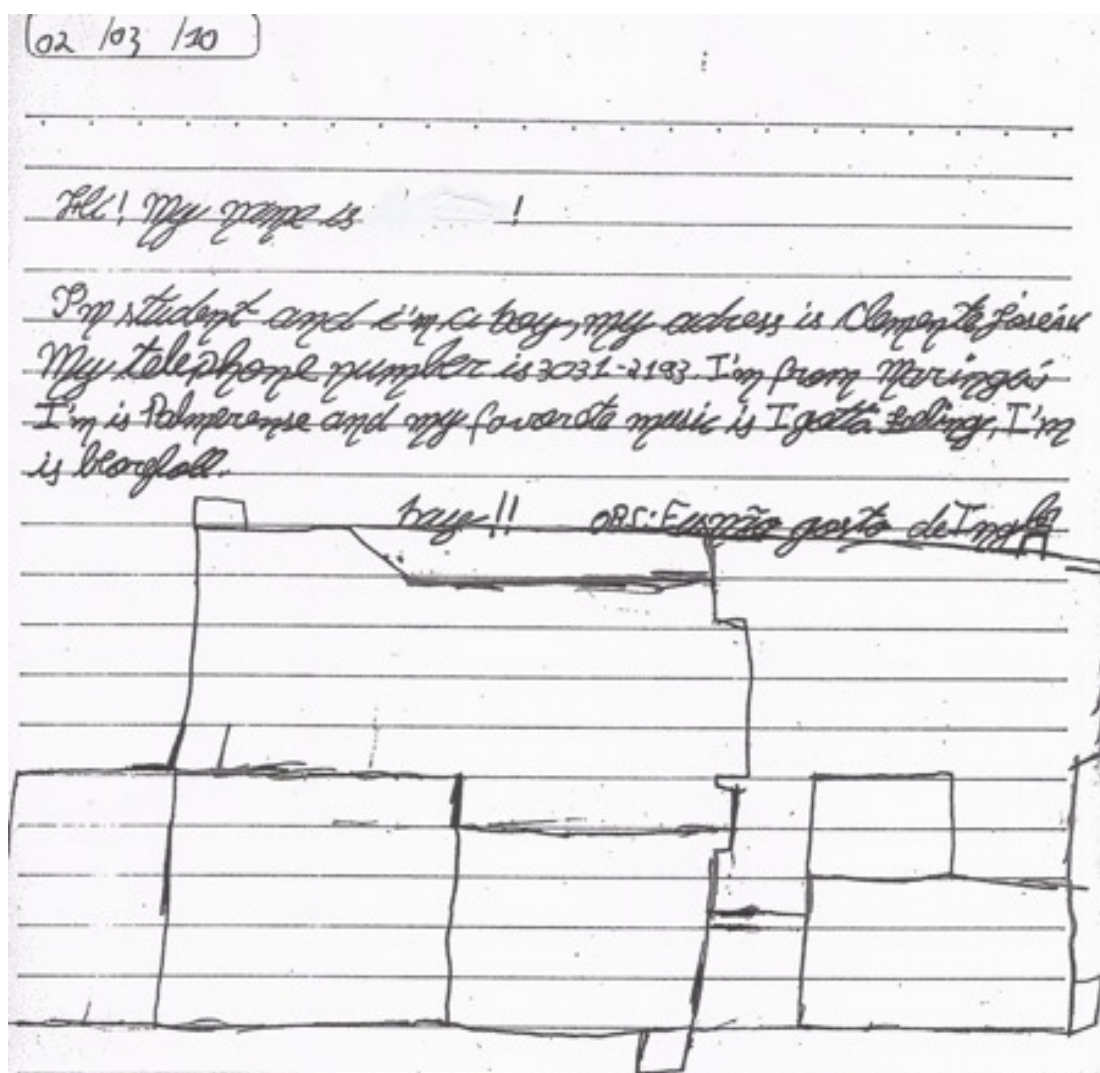 02 /03 /10
Hi! My name is !
I'm student and i'm a boy, my adress is Clemente
My telephone number is 3031-2193. I'm from Maringá
I'm is Palmerense and my favorote music is I gotta Feeling, I'm
is
baye!! OBS: Eu não gosto de Inglês